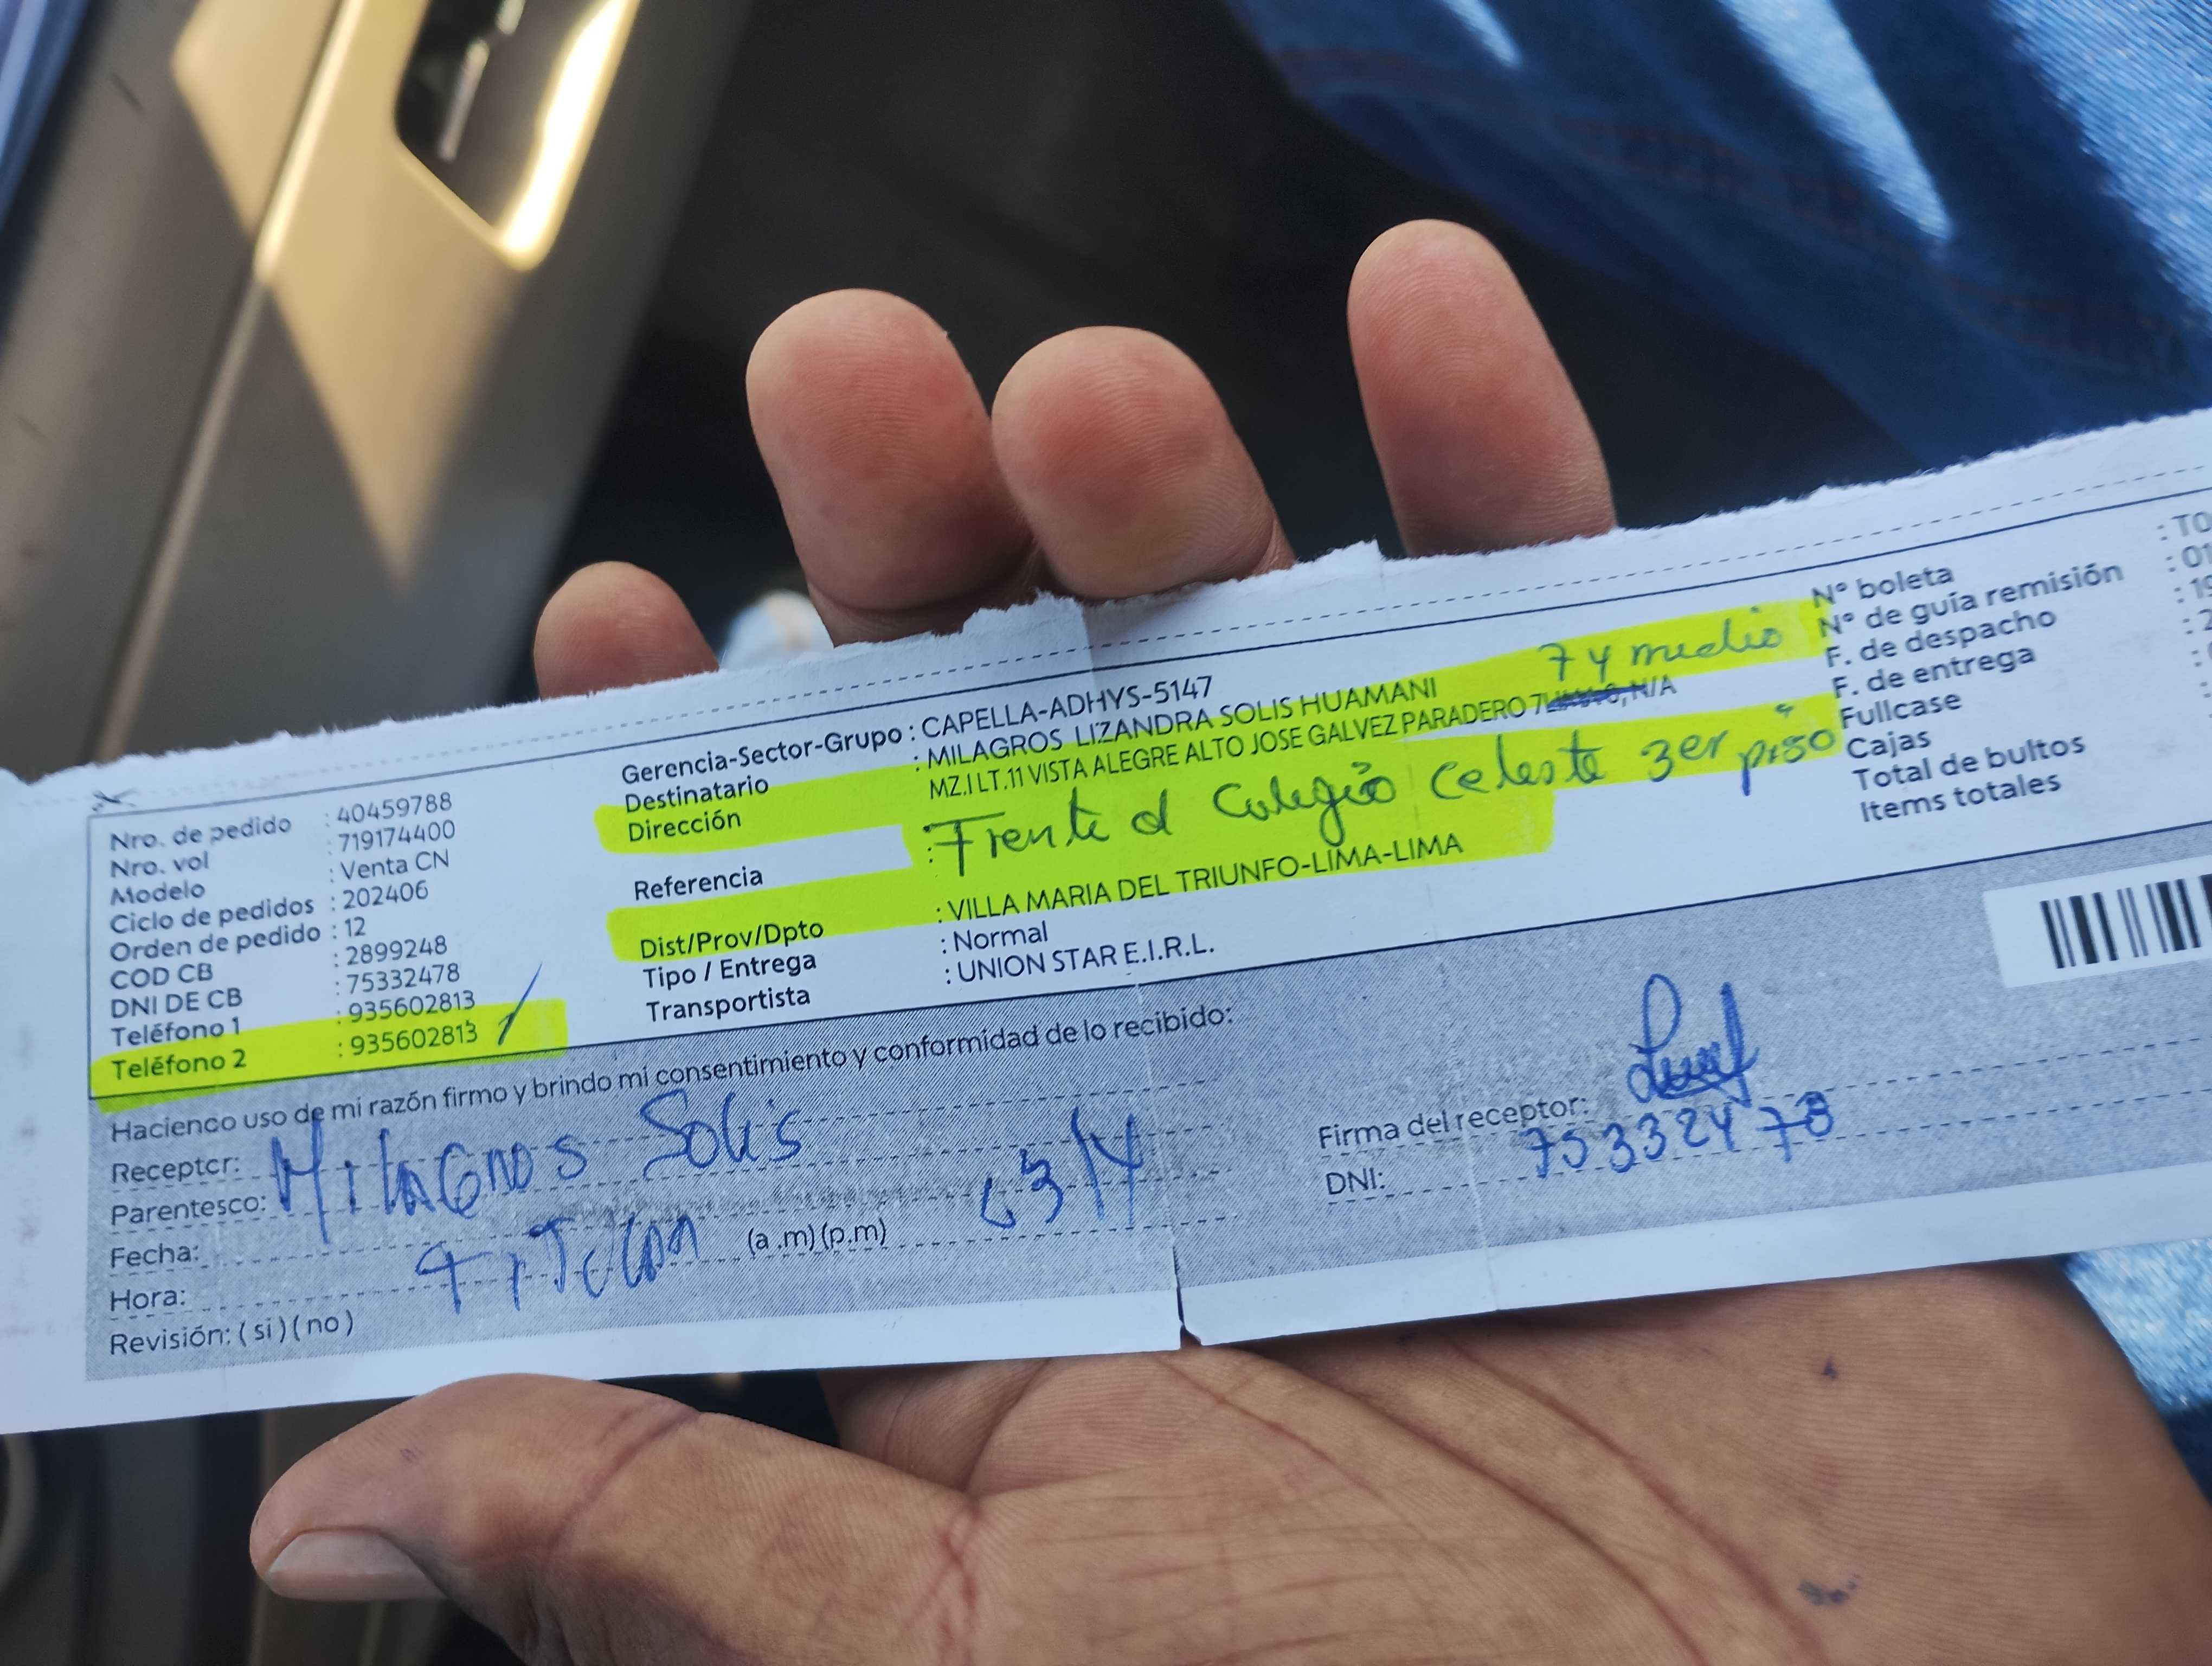 Nro. de pedido : 40459788
Nro. vol : 719174400
Modelo : Venta CN
Ciclo de pedidos : 202406
Orden de pedido : 12
COD CB : 2899248
DNI DE CB : 75332478
Teléfono 1 : 935602813
Teléfono 2 : 935602813
Gerencia-Sector-Grupo : CAPELLA-ADHYS-5147
Destinatario : MILAGROS LIZANDRA SOLIS HUAMANI
7 y medio
Dirección MZ.I LT.11 VISTA ALEGRE ALTO JOSE GALVEZ PARADERO 7 N/A
Referencia : Frente al Colegio Celeste 3er piso
Dist/Prov/Dpto : VILLA MARIA DEL TRIUNFO-LIMA-LIMA
Tipo / Entrega : Normal
Transportista : UNION STAR E.I.R.L.
N° boleta : TO
N° de guía remisión : 01
F. de despacho : 19
F. de entrega : 2
Fullcase
Cajas
Total de bultos
Items totales
Haciendo uso de mi razón firmo y brindo mi consentimiento y conformidad de lo recibido:
Receptor: Milagros Solis
Parentesco: Titular
Fecha:
Hora: (a.m)(p.m)
Revisión: (si)(no)
Firma del receptor:
DNI: 75332478